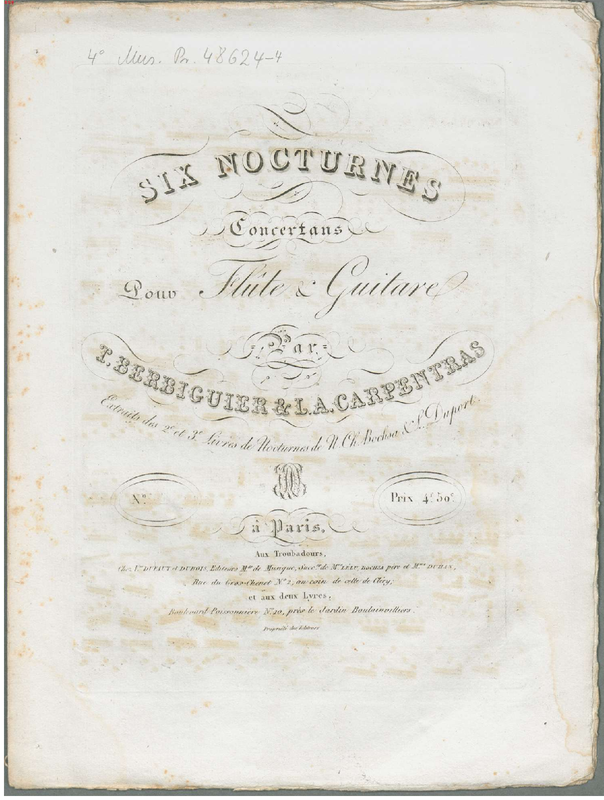 4° Mus. Pr. 48624-4
SIX NOCTURNES
Concertans
Pour Flûte & Guitare
Par
T. BERBIGUIER & L.A. CARPENTRAS
Extraits des 2e. et 3e. Livres de Nocturnes de N. Ch. Bochsa & L. Duport.
No.
Prix 4f. 50c.
à Paris,
Aux Troubadours,
Chez Vve. DUFAUT et DUBOIS, Editeurs Mds. de Musique, Succrs. de Mme. LELU, BOCHSA père et Mme. DUHAN,
Rue du Gros-Chenet No. 2, au coin de celle de Cléry,
et aux deux Lyres,
Boulevard Poissonnière No. 10, près le Jardin Boulainvilliers.
Propriété des Editeurs